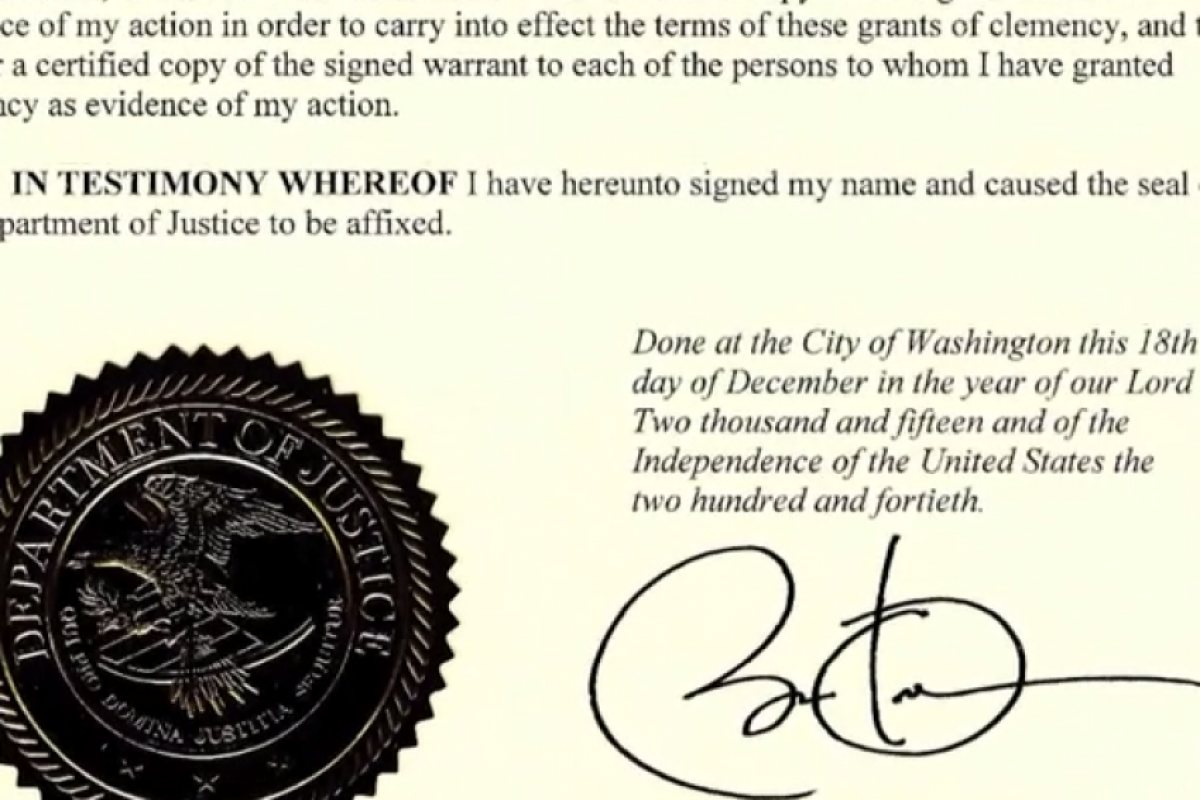 ce of my action in order to carry into effect the terms of these grants of clemency, and
a certified copy of the signed warrant to each of the persons to whom I have granted
ncy as evidence of my action.
IN TESTIMONY WHEREOF I have hereunto signed my name and caused the seal
partment of Justice to be affixed.
Done at the City of Washington this 18th
day of December in the year of our Lord
Two thousand and fifteen and of the
Independence of the United States the
two hundred and fortieth.
DEPARTMENT OF JUSTICE
QUI PRO DOMINA JUSTITIA SEQUITUR